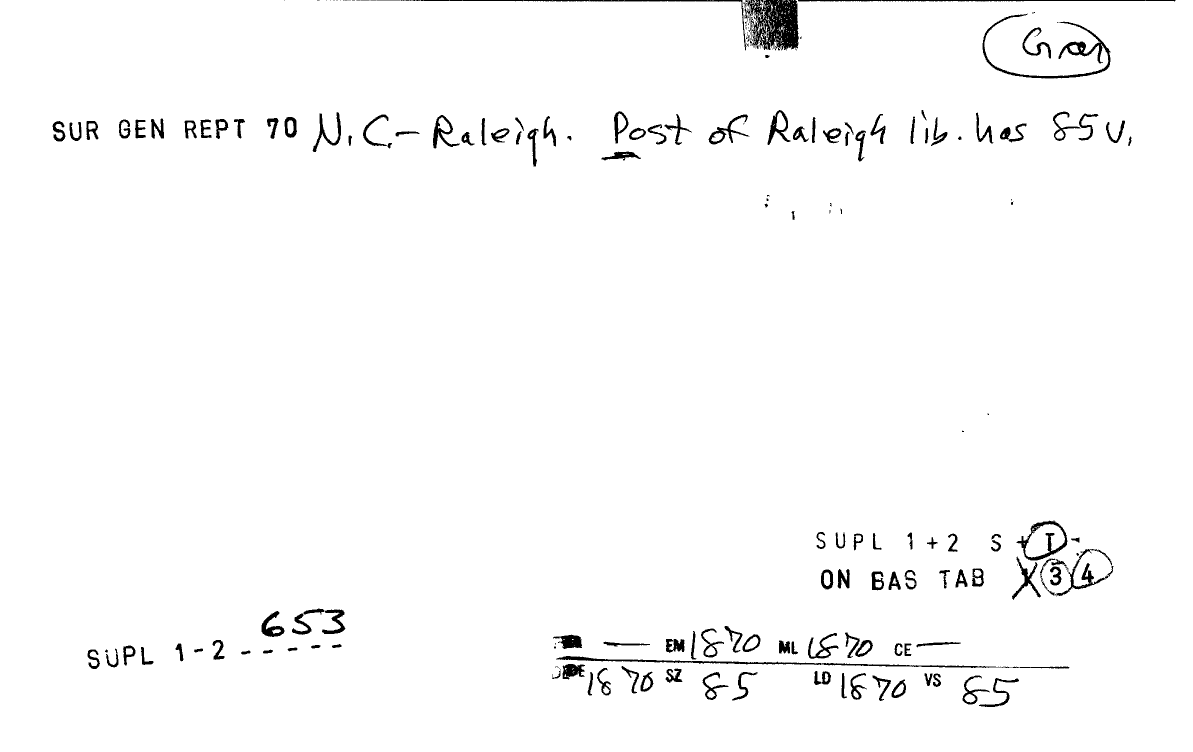 Gran
SUR GEN REPT 70 N.C.-Raleigh. Post of Raleigh lib. has 85 v.
SUPL 1+2 S+T-
ON BAS TAB X 3 4
SUPL 1-2 653
— EM 1870 ML 1870 CE —
DE 1870 SZ 85 LD 1870 VS 85